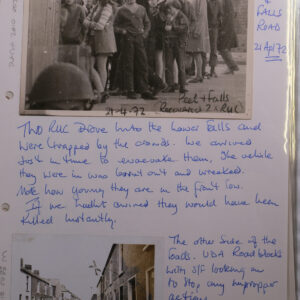 & FALLS
ROAD
21 Apr 72
21-4-72
Peel & Falls
Recovered 2 x RUC
TWO RUC drove into the Lower Falls and
were trapped by the crowds. We arrived
just in time to evacuate them. The vehicle
they were in was burnt out and wrecked.
Note how young they are in the front row.
If we hadn't arrived they would have been
killed instantly.
The other side of the
roads. UDA Road blocks
with S/F looking on
to stop any improper
actions